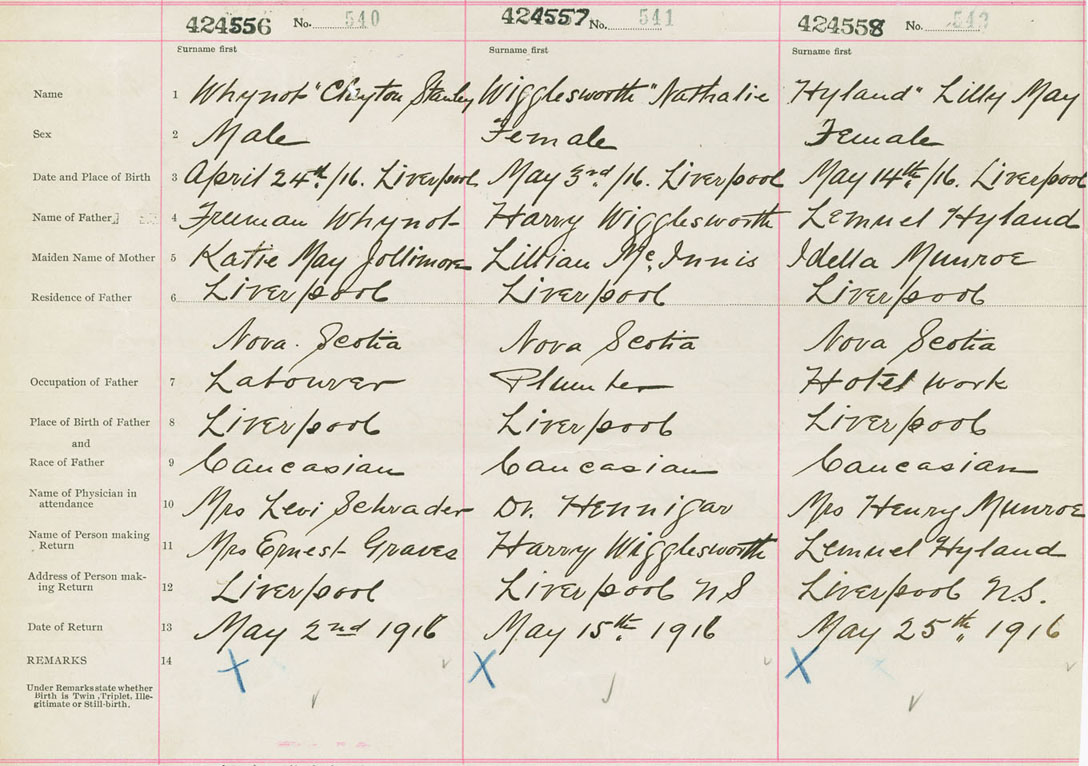 424556 No. 540 424557 No. 541 424558 No. 543
Surname first Surname first Surname first
Name 1 Whynot "Clayton Stanley Wigglesworth "Nathalie Hyland" Lilly May
Sex 2 Male Female Female
Date and Place of Birth 3 April 24th/16. Liverpool May 3rd/16. Liverpool May 14th/16. Liverpool
Name of Father 4 Freeman Whynot Harry Wigglesworth Lemuel Hyland
Maiden Name of Mother 5 Katie May Jollimore Lillian Mc Innis Idella Munroe
Residence of Father 6 Liverpool Liverpool Liverpool
Nova Scotia Nova Scotia Nova Scotia
Occupation of Father 7 Labourer Plumber Hotel work
Place of Birth of Father 8 Liverpool Liverpool Liverpool
and
Race of Father 9 Caucasian Caucasian Caucasian
Name of Physician in
attendance 10 Mrs Levi Schrader Dr. Hennigar Mrs Henry Munroe
Name of Person making
Return 11 Mrs Ernest Graves Harry Wigglesworth Lemuel Hyland
Address of Person mak-
ing Return 12 Liverpool Liverpool NS Liverpool N.S.
Date of Return 13 May 2nd 1916 May 15th 1916 May 25th 1916
REMARKS 14 X X X
Under Remarks state whether
Birth is Twin, Triplet, Ille-
gitimate or Still-birth.